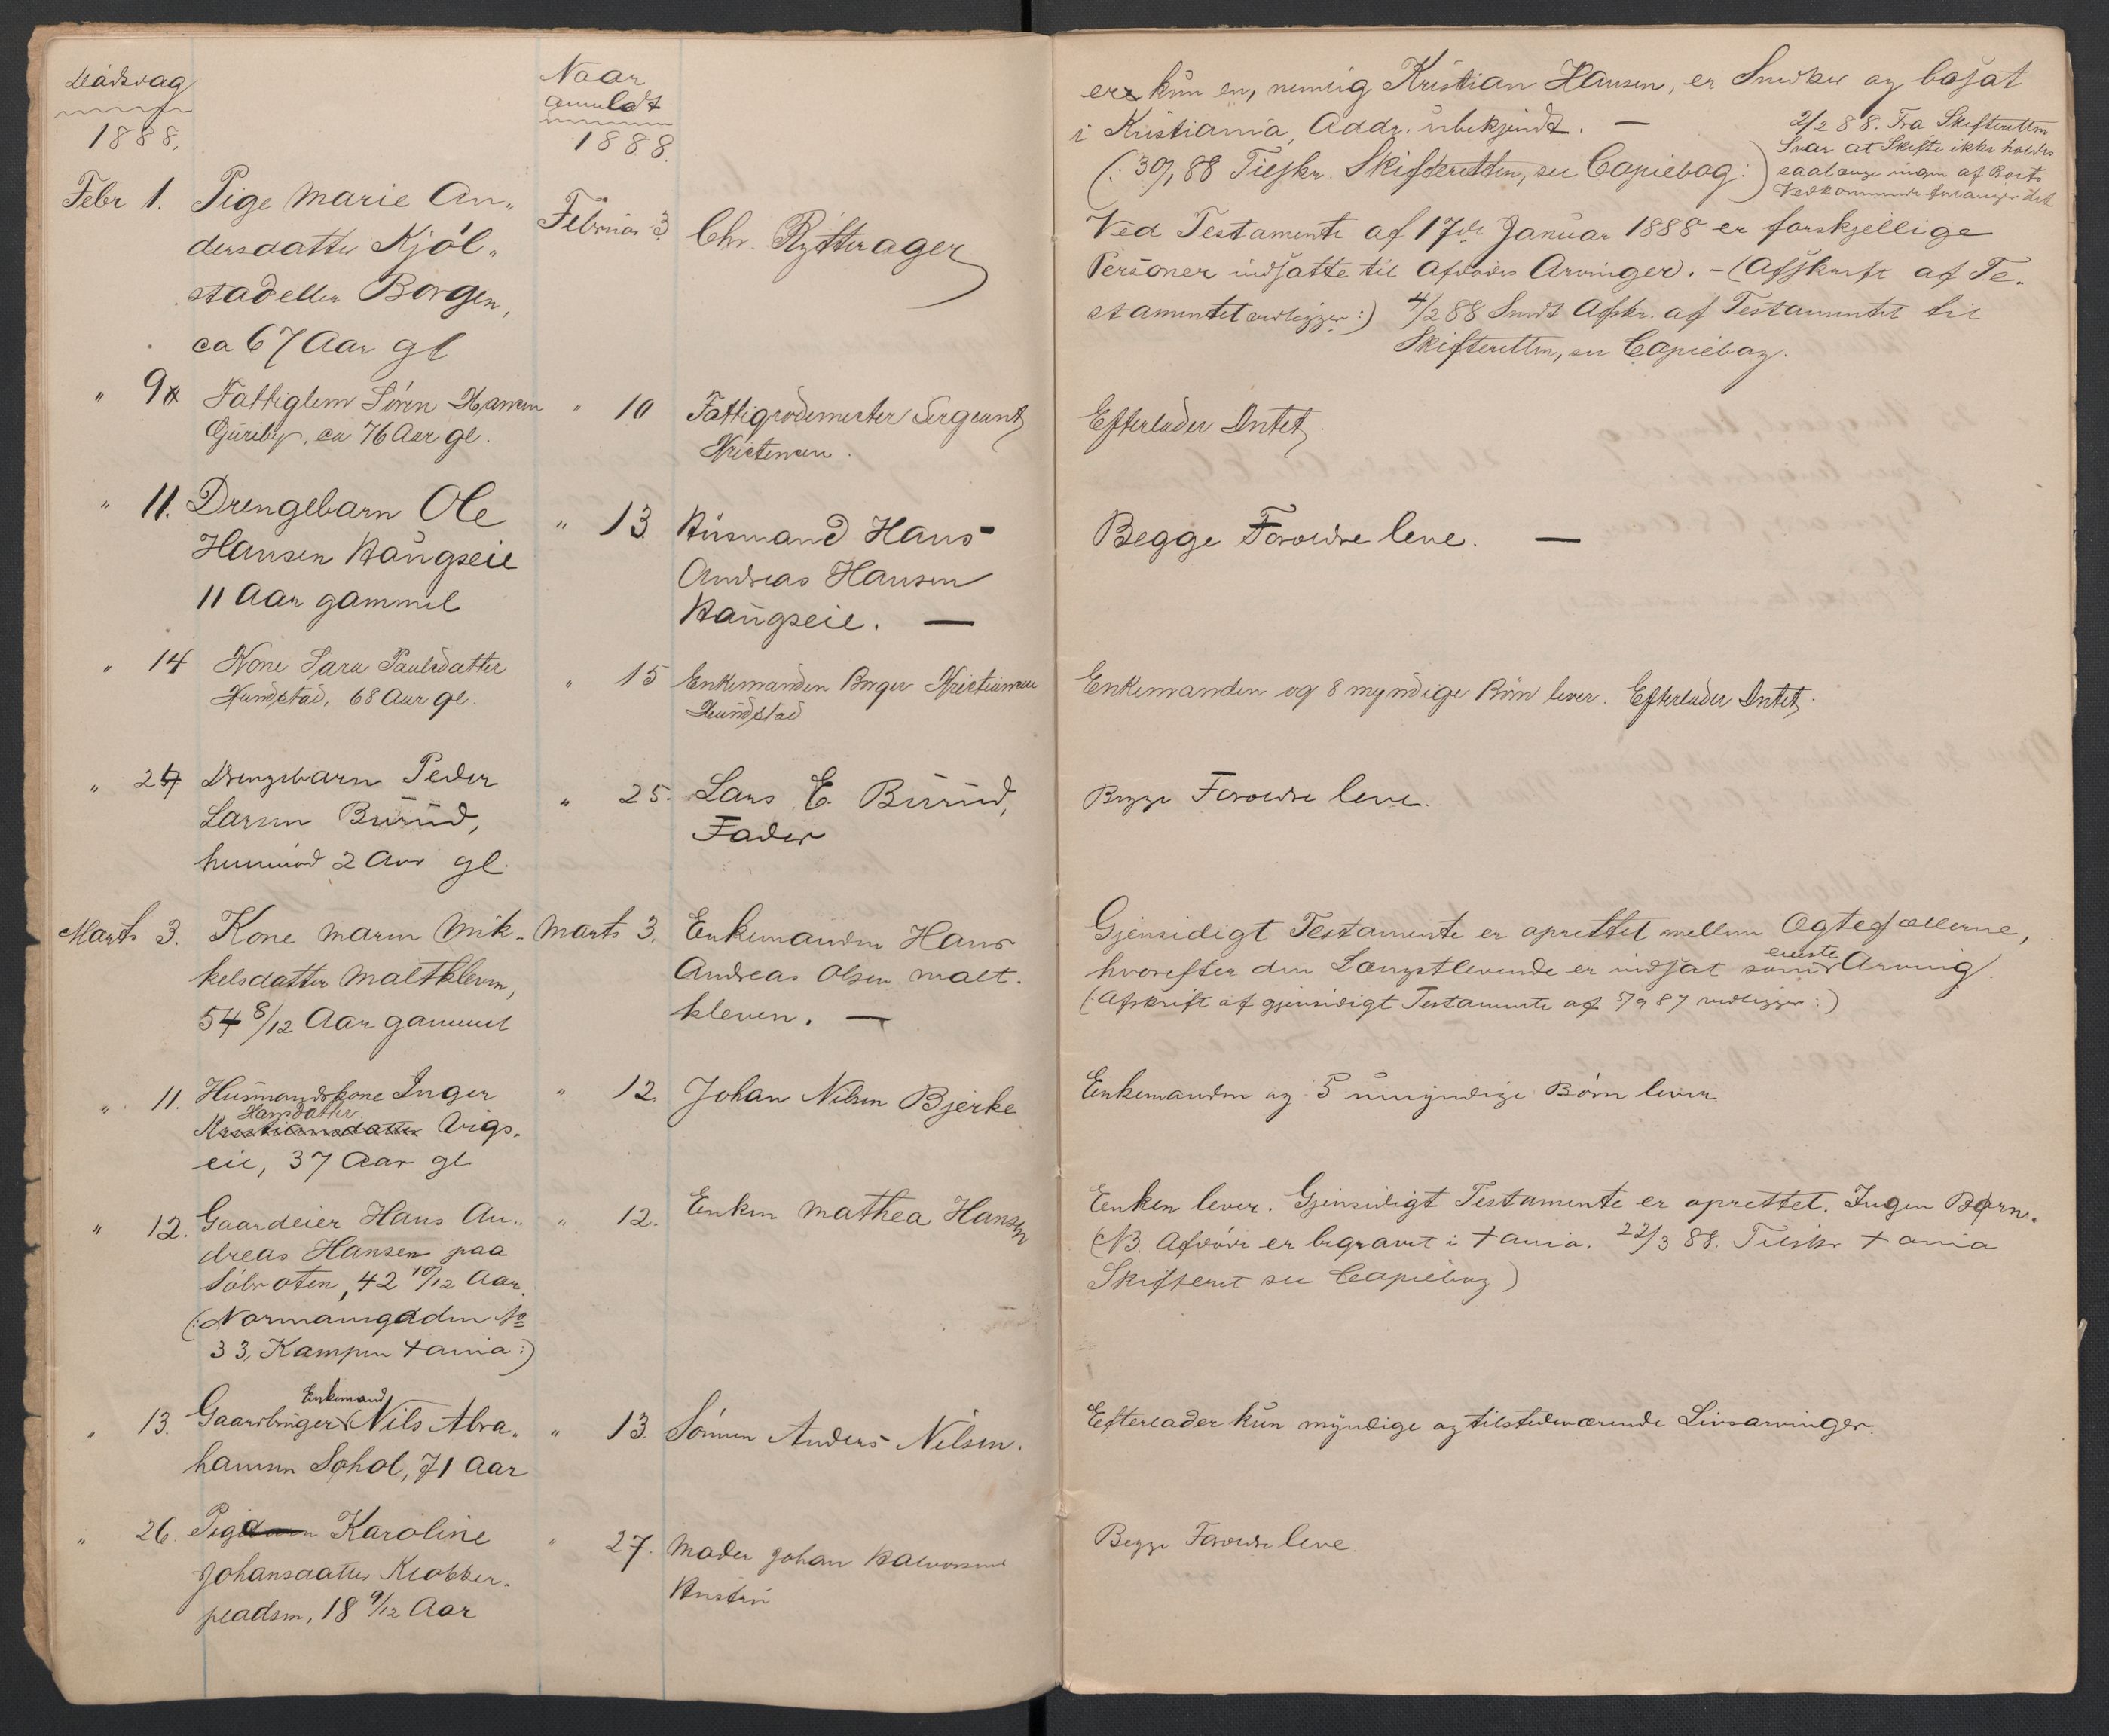 Dødsdag
1888.
Naar
anmeldt
1888.
Febr 1. Pige Marie An„
dersdatter Kjøl„
stad eller Borgen,
ca 67 Aar gl
Februar 3. Chr. Rytterager
" 9 Fattiglem Søren Hansen
Guriby, ca 76 Aar gl.
" 10 Fattigrodemester Sergeant
Kristensen.
" 11. Drengebarn Ole
Hansen Haugseie
11 Aar gammel
" 13. Husmand Hans
Andreas Hansen
Haugseie. —
" 14 Kone Sara Paulsdatter
Hundstad, 68 Aar gl.
" 15 Enkemanden Borger Kristiansen
Hundstad
" 24 Drengebarn Peder
Larsen Burud,
henimod 2 Aar gl.
" 25. Lars E. Burud,
Fader
Marts 3. Kone Maren Mik-
kelsdatter Maltkleven,
54 8/12 Aar gammel
Marts 3. Enkemanden Hans
Andreas Olsen Malt-
kleven. —
" 11. Husmandskone Inger
Hansdatter
Kristiansdatter Vigs-
eie, 37 Aar gl
" 12. Johan Nilsen Bjerke
" 12. Gaardeier Hans An„
dreas Hansen paa
Sølvroten, 42 10/12 Aar.
(: Normansgaden No
33, Kampen Xania :)
" 12. Enken Mathea Hansen
" 13. Gaardbruger Enkemand Nils Abra„
hamsen Sohol, 71 Aar
" 13. Sønnen Anders Nilsen.
" 26. Pige Karoline
Johansdatter Klokker-
pladsen, 18 9/12 Aar
" 27. Moder Johan Halvorsens
Hustru
er kun en, nemlig Kristian Hansen, er Snedker og bosat
i Kristiania, Addr. ubekjendt. —
(: 30/1 88 Tilskr. Skifteretten, see Copiebog :)
2/2 88. Fra Skifteretten
Svar at Skifte ikke holdes
saalænge ingen af Rette
Vedkommende forlanger det
Ved Testamente af 17de Januar 1888 er forskjellige
Personer indsatte til Afdødes Arvinger. - (Afskrift af Te-
stamentet vedligger :) 4/2 88 Sendt Afskr. af Testamentet til
Skifteretten, see Copiebog.
Efterlader Intet.
Begge Forældre leve. —
Enkemanden og 8 myndige Børn lever. Efterlader Intet.
Begge Forældre leve.
Gjensidigt Testamente er oprettet mellem Ægtefællerne,
hvorefter den Længstlevende er indsat som eneste Arving.
(: Afskrift af gjensidigt Testamente af 5/9 87 vedligger :)
Enkemanden og 5 umyndige Børn lever.
Enken lever. Gjensidigt Testamente er oprettet. Ingen Børn.
(NB. Afdøde er begravet i Xania. 22/3 88. Tilskr Xania
Skifteret see Copiebog)
Efterlader kun myndige og tilstedeværende Livsarvinger.
Begge Forældre leve.